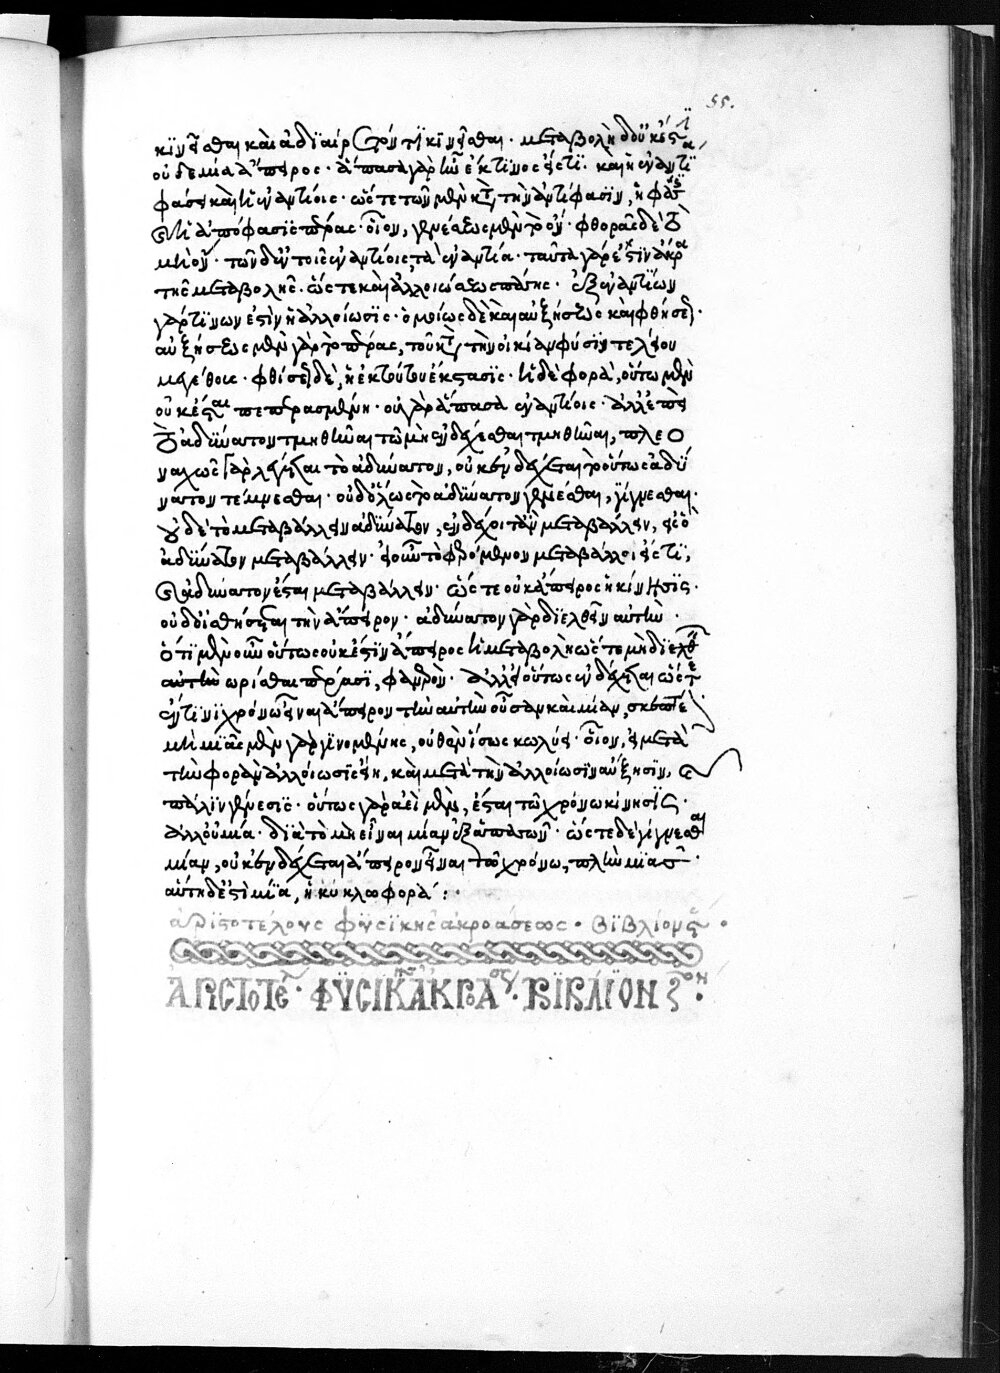 55.
κινεῖσθαι καὶ ἀδιαίρετόν τι κινεῖσθαι· μεταβολὴ δ' οὐκ ἔστιν
οὐδεμία ἄπειρος· ἅπασα γὰρ ἦν ἔκ τινος εἴς τι· καὶ ἡ ἐν ἀντι
φάσει καὶ ἡ ἐν ἀντίοις· ὥστε τῶν μὲν κατ' τὴν ἀντίφασιν, ἡ φάσις
καὶ ἡ ἀπόφασις πέρας· οἷον, γενέσεως μὲν τὸ ὄν· φθορᾶς δὲ τὸ
μὴ ὄν· τῶν δ' ἐν τοῖς ἐναντίοις, τὰ ἐναντία· ταῦτα γὰρ ἔστιν ἄκρα
τῆς μεταβολῆς· ὥστε καὶ ἀλλοιώσεως πάσης· ἐξ ἐναντίων
γάρ τινων ἐστὶν ἡ ἀλλοίωσις· ὁμοίως δὲ καὶ αὐξήσεως καὶ φθίσεως·
αὐξήσεως μὲν γὰρ τὸ πέρας, τοῦ κατὰ τὴν οἰκείαν φύσιν τελείου
μεγέθους· φθίσεως δὲ, ἡ ἐκ τούτου ἔκστασις· ἡ δὲ φορὰ, οὕτω μὲν
οὐκ ἔσται πεπερασμένη· οὐ γὰρ ἅπασα ἐν ἀντίοις· ἀλλ' ἐπεὶ
τὸ ἀδύνατον τμηθῆναι τῷ μὴ ἐνδέχεσθαι τμηθῆναι, πλεο
ναχῶς γὰρ λέγεται τὸ ἀδύνατον, οὐκ ἐνδέχεται τὸ οὕτως ἀδύ
νατον τέμνεσθαι· οὐδ' ὅλως τὸ ἀδύνατον γενέσθαι, γίγνεσθαι·
οὐδὲ τὸ μεταβάλλειν ἀδύνατον, ἐνδέχοιτ' ἂν μεταβάλλειν, εἰς ὃ
ἀδύνατον μεταβάλλειν· εἰ οὖν τὸ φερόμενον μεταβάλλοι εἴς τι,
καὶ δυνατὸν ἔσται μεταβάλλειν· ὥστε οὐκ ἄπειρος ἡ κίνησις·
οὐδ' οἰσθήσεται τὴν ἄπειρον· ἀδύνατον γὰρ διελθεῖν αὐτὴν·
ὅτι μὲν οὖν οὕτως οὐκ ἔστιν ἄπειρος ἡ μεταβολὴ ὥστε μὴ διελθεῖν
αὐτὴν ὡρίσθαι πέρασι, φανερόν· ἀλλ' εἰ οὕτως ἐνδέχεται ὥστε
ἐν τινι χρόνῳ εἶναι ἄπειρον τὴν αὐτὴν οὖσαν καὶ μίαν, σκεπτέον
μὴ μιᾶς μὲν γὰρ γινομένης, οὐθὲν ἴσως κωλύει· οἷον, εἰ μετὰ
τὴν φορὰν ἀλλοίωσις εἴη, καὶ μετὰ τὴν ἀλλοίωσιν αὔξησιν, καὶ
πάλιν γένεσις· οὕτως γὰρ ἀεὶ μὲν, ἔσται τῷ χρόνῳ κίνησις·
ἀλλ' οὐ μία· διὰ τὸ μὴ εἶναι μίαν ἐξ ἁπασῶν· ὥστε δὲ γίγνεσθαι
μίαν, οὐκ ἐνδέχεται ἄπειρον εἶναι τῷ χρόνῳ, πλὴν μιᾶς·
αὕτη δ' ἐστὶ μία, ἡ κύκλῳ φορὰ:·
ἀριστοτέλους φυσικῆς ἀκροάσεως· βιβλίον ς·
ἈΡΙΣΤΟΤΕΛ· ΦΥΣΙΚΗΣ ἈΚΡΟΑΣ· ΒΙΒΛΙΟΝ Ζον·